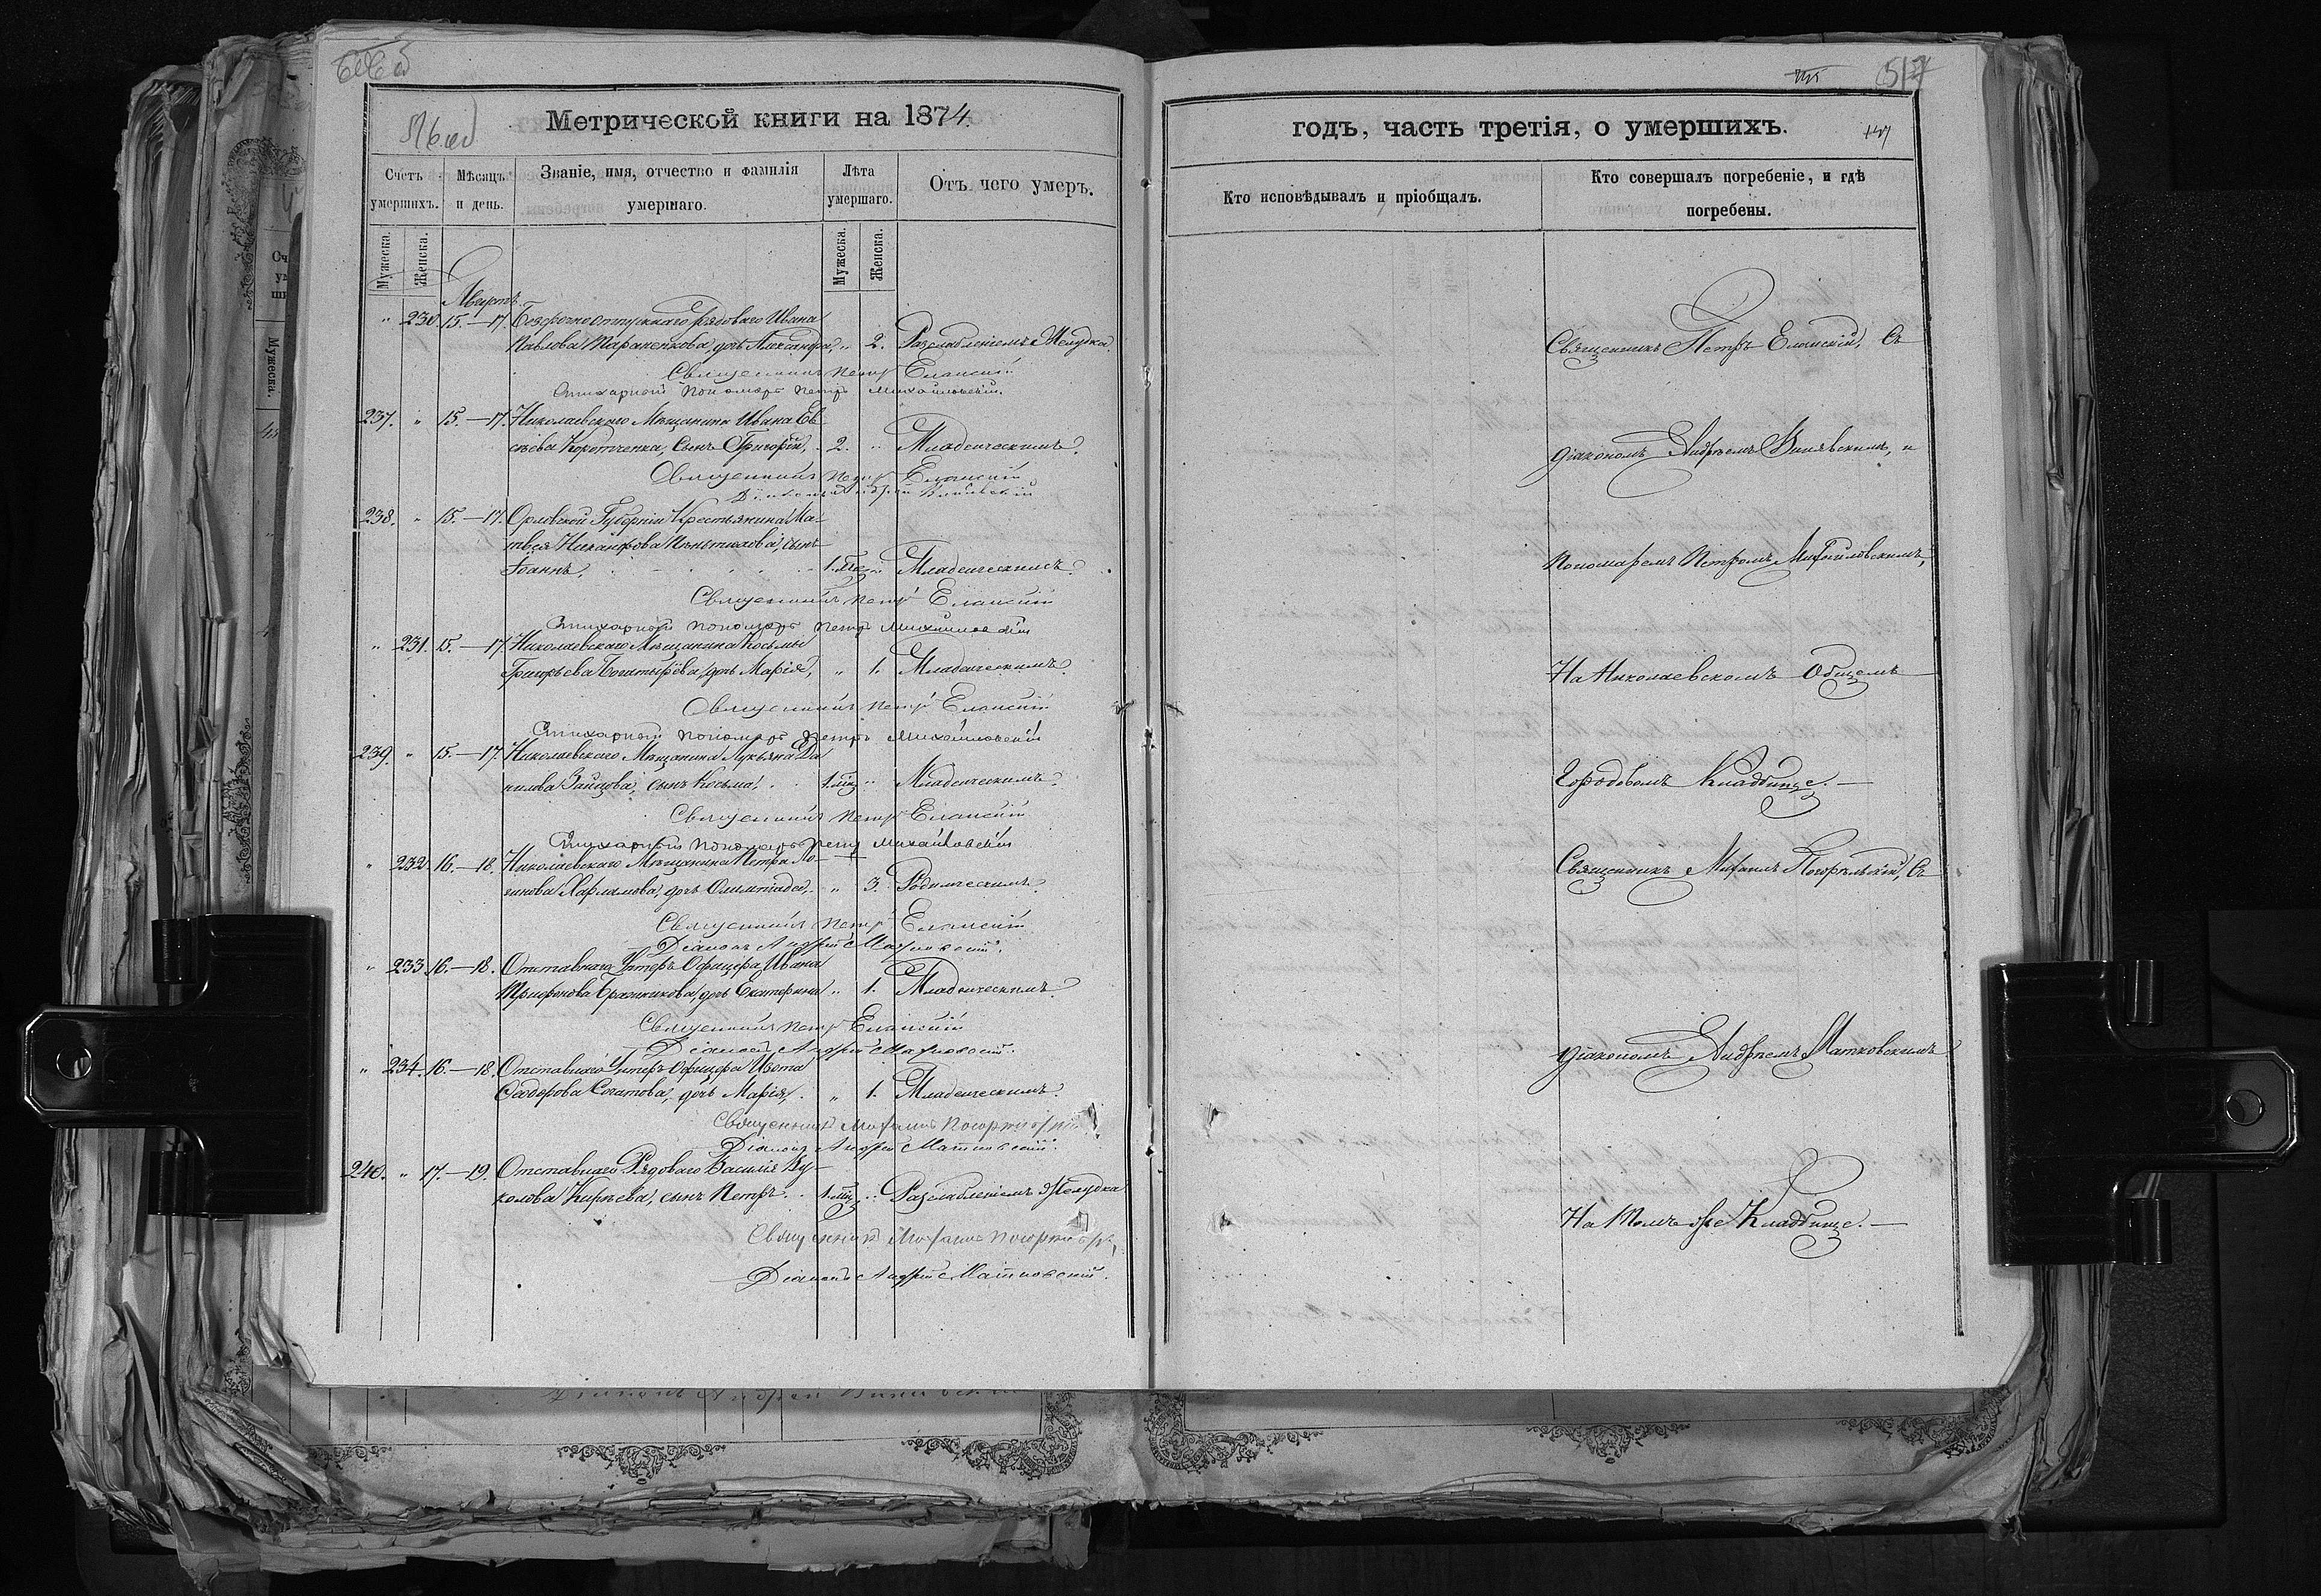 517
516 об
Метрической книги на 1874
годъ, часть третія, о умершихъ.
Счетъ умершихъ.
Мѣсяцъ и день.
Званіе, имя, отчество и фамилія умершаго.
Лѣта умершаго.
Отъ чего умеръ.
Кто исповѣдывалъ и пріобщалъ.
Кто совершалъ погребеніе, и гдѣ погребены.
Мужеска.
Женска.
Мужеска.
Женска.
Августъ
" 230. 15.—17. Безсрочноотпускнаго рядоваго Ивана
Павлова Тараненкова, дочь Александра, " 2. Разслабленіемъ Желудка.
Священникъ Петръ Еланскій
Стихарный Пономарь Петръ Михайловскій.
237. " 15.—17. Николаевскаго Мѣщанина Ивана Ев-
сѣева Коротченка, сынъ Григорій, 2. " Младенческимъ.
Священникъ Петръ Еланскій
Діаконъ Андрей
238. " 15.—17. Орловской Губерніи Крестьянина Ма-
твея Никанорова сынъ
Іоаннъ, 1. мѣс. " Младенческимъ.
Священникъ Петръ Еланскій
Стихарный Пономарь Петръ Михайловскій
" 231. 15.—17. Николаевскаго Мѣщанина Косьмы
Григорьева Богатырёва, дочь Марія, " 1. Младенческимъ.
Священникъ Петръ Еланскій
Стихарный Пономарь Петръ Михайловскій
239. " 15.—17. Николаевскаго Мѣщанина Лукьяна Да
нилова Зайцова, сынъ Косьма, 1. мѣс. " Младенческимъ.
Священникъ Петръ Еланскій
Стихарный Пономарь Петръ Михайловскій
" 232. 16.—18. Николаевскаго Мѣщанина Петра Ло-
гинова Харламова, дочь Олимпіада, " 3. Родимческимъ.
Священникъ Петръ Еланскій
Діаконъ Андрей Матковскій.
" 233. 16.—18. Отставнаго Унтеръ Офицера Ивана
Трифонова дочь Екатерина " 1. Младенческимъ.
Священникъ Петръ Еланскій
Діаконъ Андрей Матковскій.
" 234. 16.—18. Отставнаго Унтеръ Офицера
дочь Марія, " 1. Младенческимъ.
Священникъ Михаилъ
Діаконъ Андрей Матковскій.
240. " 17.—19. Отставнаго Рядоваго Василія Ву-
колова Кирѣева, сынъ Петръ. 1. мѣс. " Разслабленіемъ Желудка
Священникъ Михаилъ
Діаконъ Андрей Матковскій.
Священникъ Петръ Еланскій, Съ
Діакономъ Андреемъ и
Пономаремъ Петромъ Михайловскимъ,
На Николаевскомъ Общемъ
Городовомъ Кладбище.—
Священникъ Михаилъ Съ
Діакономъ Андреемъ Матковскимъ
На томъ же Кладбище.—